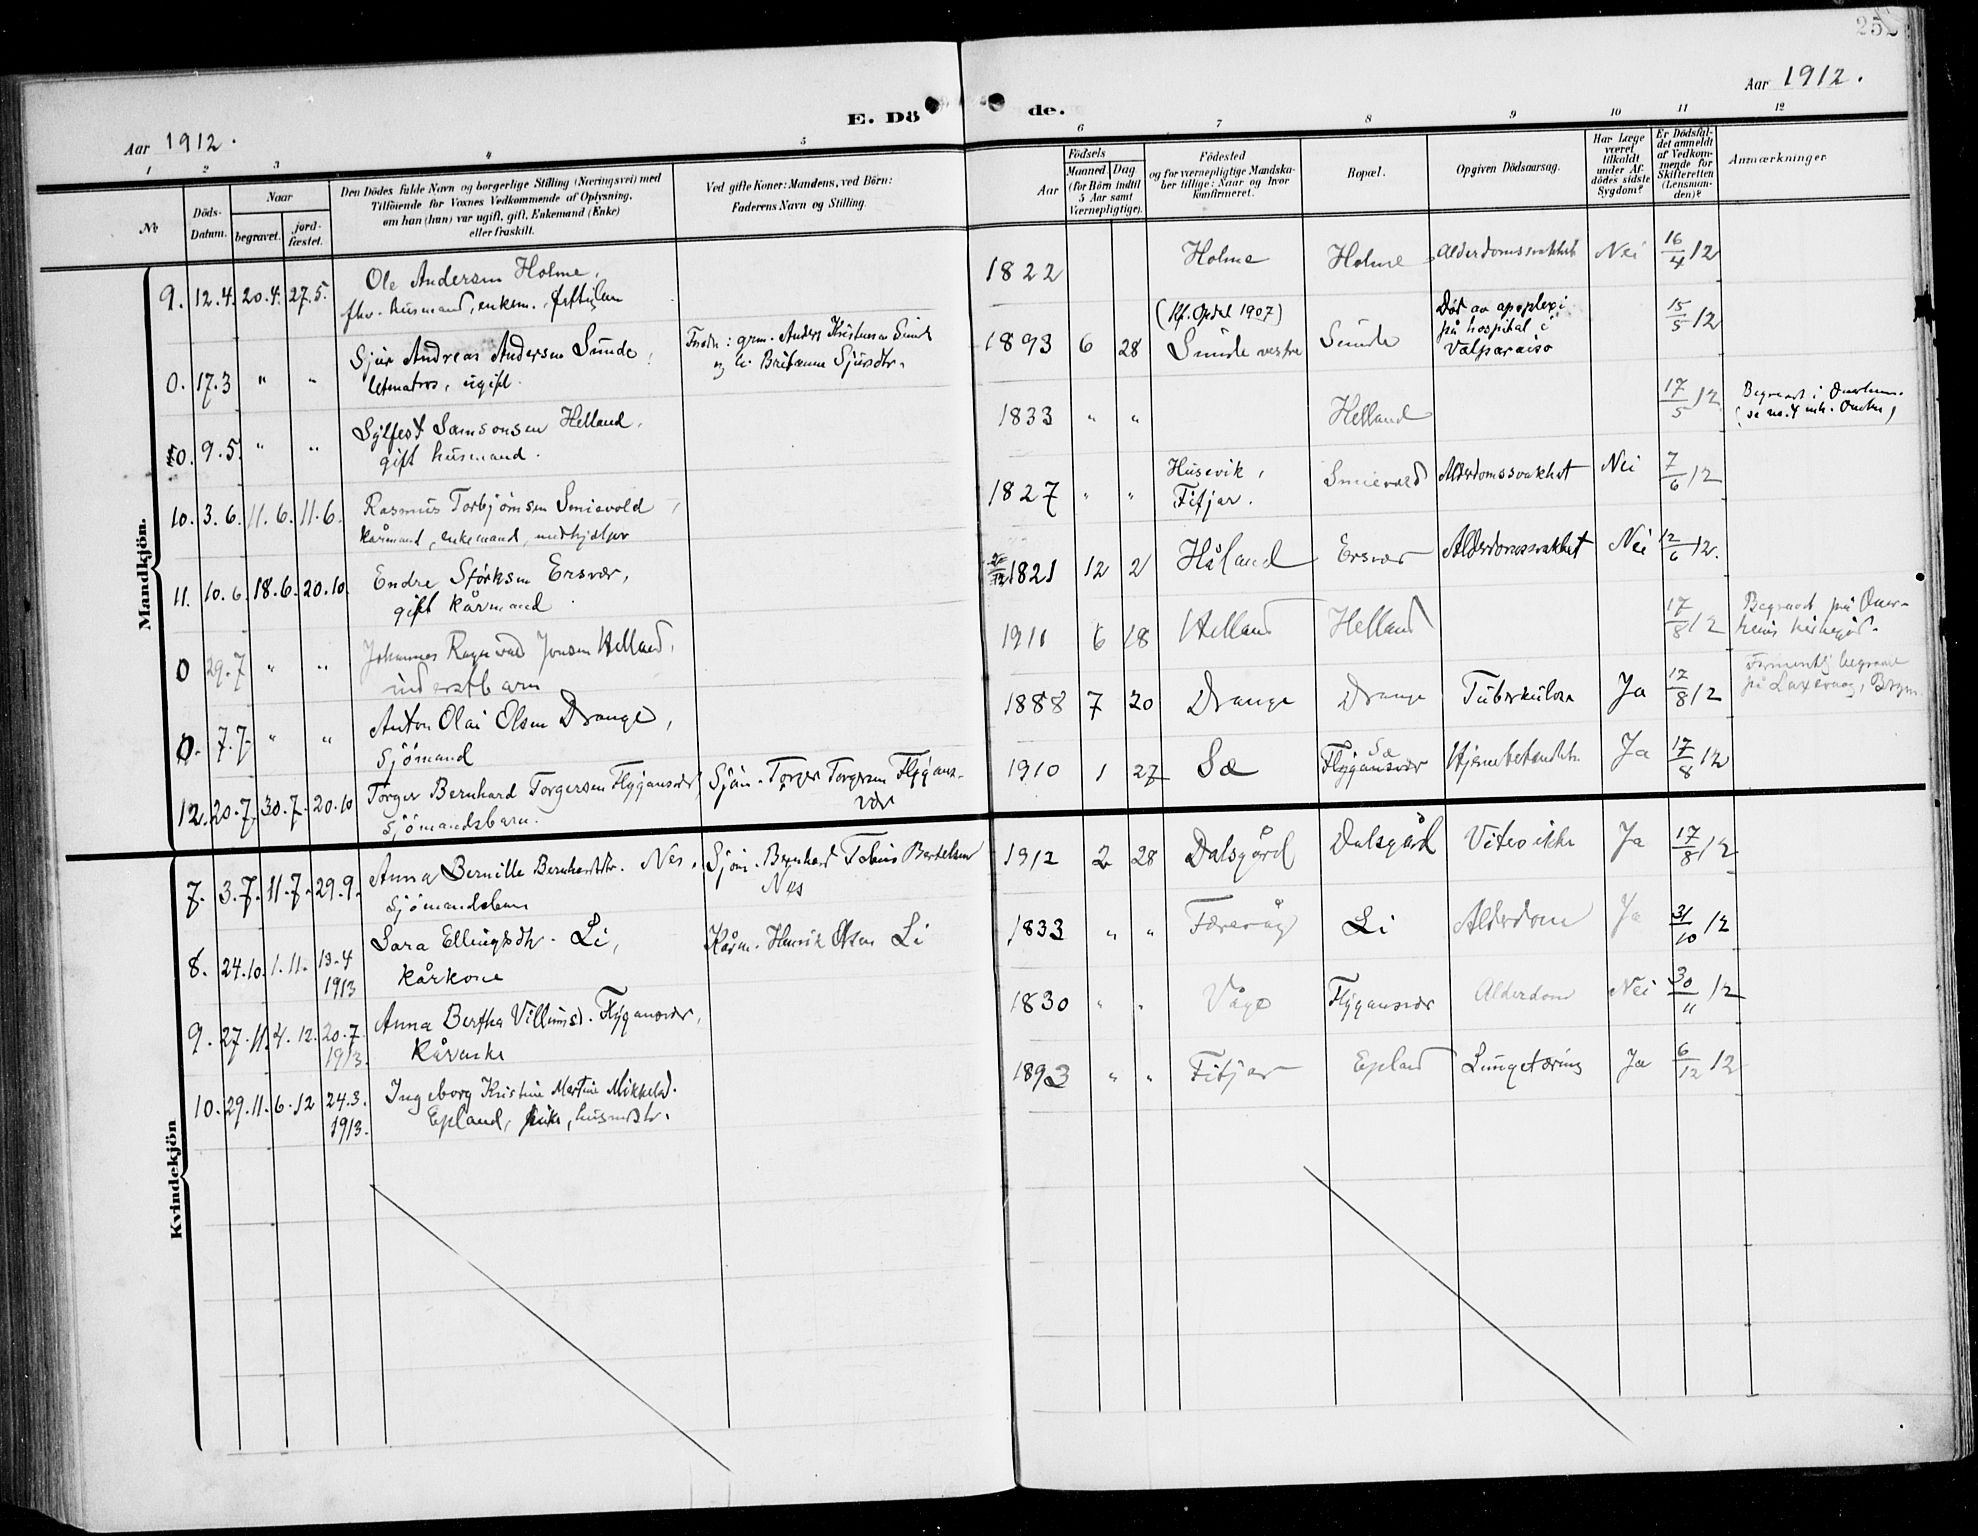 252
Aar 1912.
E. Dö
de.
Aar 1912.
1 2 3 4 5
6 7 8 9 10 11 12
No
Döds-
Datum.
Naar
begravet.
jord-
fæstet.
Den Dödes fulde Navn og borgerlige Stilling (Næringsvei) med
Tilföiende for Voxnes Vedkommende af Oplysning,
om han (hun) var ugift, gift, Enkemand (Enke)
eller fraskilt.
Ved gifte Koner: Mandens, ved Börn:
Faderens Navn og Stilling.
Födsels
Aar
Maaned. Dag
(for Börn indtil
5 Aar samt
Værnepligtige).
Födested
og for værnepligtige Mandska-
ber tillige: Naar og hvor
konfirmeret.
Bopæl.
Opgiven Dödsaarsag.
Har Læge
været
tilkaldt
under Af-
dödes sidste
Sygdom?
Er Dödsfal-
det anmeldt
af Vedkom-
mende for
Skifteretten
(Lensman-
den)?
Anmærkninger
Mandkjön.
9. 12.4. 20.4. 27.5. Ole Andersen Holme,
fhv. husmand, enkem.
1822 Holme Holme Alderdomssvakhet Nei 16/4 12
0. 17.3 " " Sjur Andreas Andersen Sunde,
letmatros, ugift.
Anders Kristensen Sunde
Sjursdtr.
1893 6 28 (Kf. Opdal 1907)
Sunde vestre Sunde Död av apoplexi
på hospital i
Valparaiso 15/5 12
0. 9.5. " " Sylfest Samsonsen Helland,
gift husmand.
1833 " " Helland 17/5 12 Begravet i
10. 3.6. 11.6. 11.6. Rasmus Torbjørnsen Smievold,
kårmand, enkemand,
1827 " " Husevik,
Fitjar. Smievold Alderdomssvakhet Nei 7/6 12
11. 10.6. 18.6. 20.10. Endre Störksen Ersvær,
gift kårmand
1821 12 2 Håland Ersvær Alderdomssvakhet Nei 12/6 12.
0 29.7 " " Johannes Ragnvald Jonsen Helland,
inderstbarn
1911 6 18 Helland Helland 17/8 12 Begravet på Över-
heims kirkegård.
0. 7.7. " " Anton Olai Olsen Drange,
sjömand
1888 7 20 Drange Drange Tuberkulose Ja 17/8 12 begravet
på Laxevaag, Bergen
12. 20.7. 30.7. 20.10 Torger Bernhard Torgersen Flygansvær,
sjömandsbarn.
Sjöm. Torger Torgersen Flygans-
vær
1910 1 27 Sæ Sæ
Flygansvær Hjernebetændelse Ja 17/8 12
Kvindekjön
7. 3.7. 11.7. 29.9. Anna Bernille Bernhardsdtr. Nes,
sjömandsbarn
Sjöm. Bernhard Tobias Bertelsen
Nes
1912 2 28 Dalsgård Dalsgård Vites ikke Ja 17/8 12
8. 24.10. 1.11. 13.4
1913 Sara Ellingsdtr. Li,
kårkone
Kårm. Henrik Olsen Li
1833 " " Færevåg Li Alderdom Ja 31/10 12
9. 27.11. 4.12. 20.7.
1913. Anna Bertha Villumsd. Flygansvær,
kårenke
1830 " " Våge Flygansvær Alderdom Nei 30/11 12
10. 29.11. 6.12 24.3.
1913. Ingeborg Kristine Martine Mikkelsd.
Epland, pike, husmdtr.
1893 " " Fitjar Epland Lungetæring Ja 6/12 12